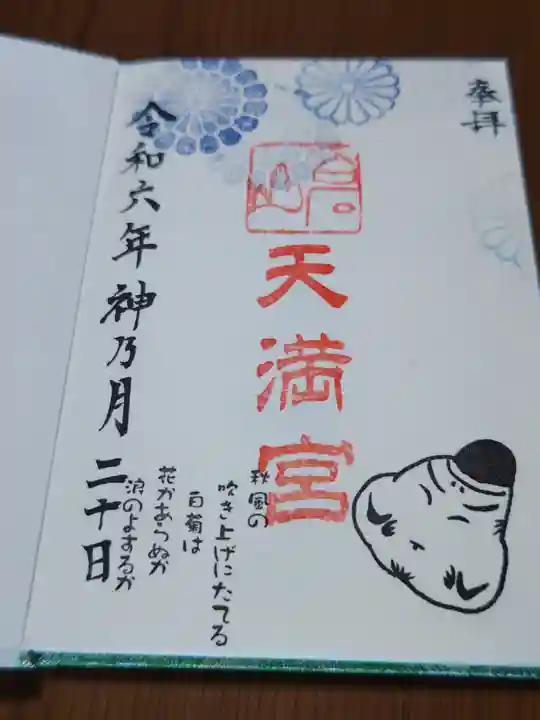 奉拝
天満宮
秋風の
吹き上げにたてる
白菊は
花かあらぬか
浪のよするか
令和六年神乃月二十日